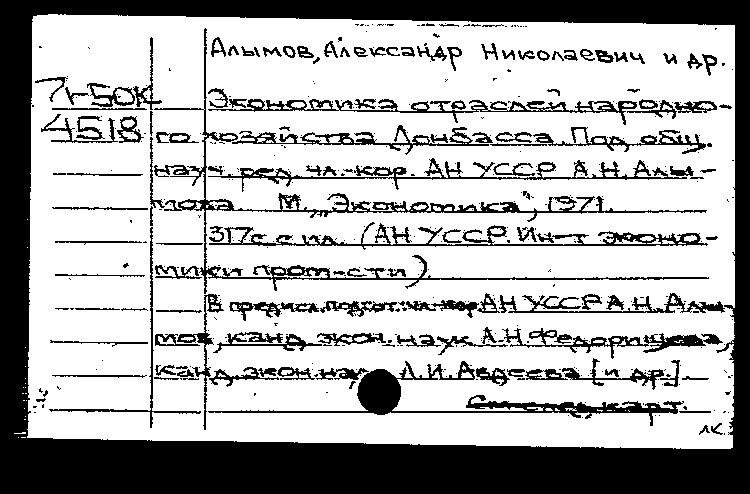 Алымов, Александр Николаевич и др.
71-50К Экономика отраслей народно-
4518 го хозяйства Донбасса. Под общ.
науч. ред. чл.-кор. АН УССР А.Н. Алы-
мова. М., „Экономика", 1971.
317с. с ил. (АН УССР. Ин-т эконо-
мики пром-сти).
В предисл. подгот.: чл.-кор. АН УССР А.Н. Алы-
мов, канд. экон. наук А.Н. Федорищева,
канд. экон. наук Л.И. Авдеева [и др.].
См. след. карт.
лк